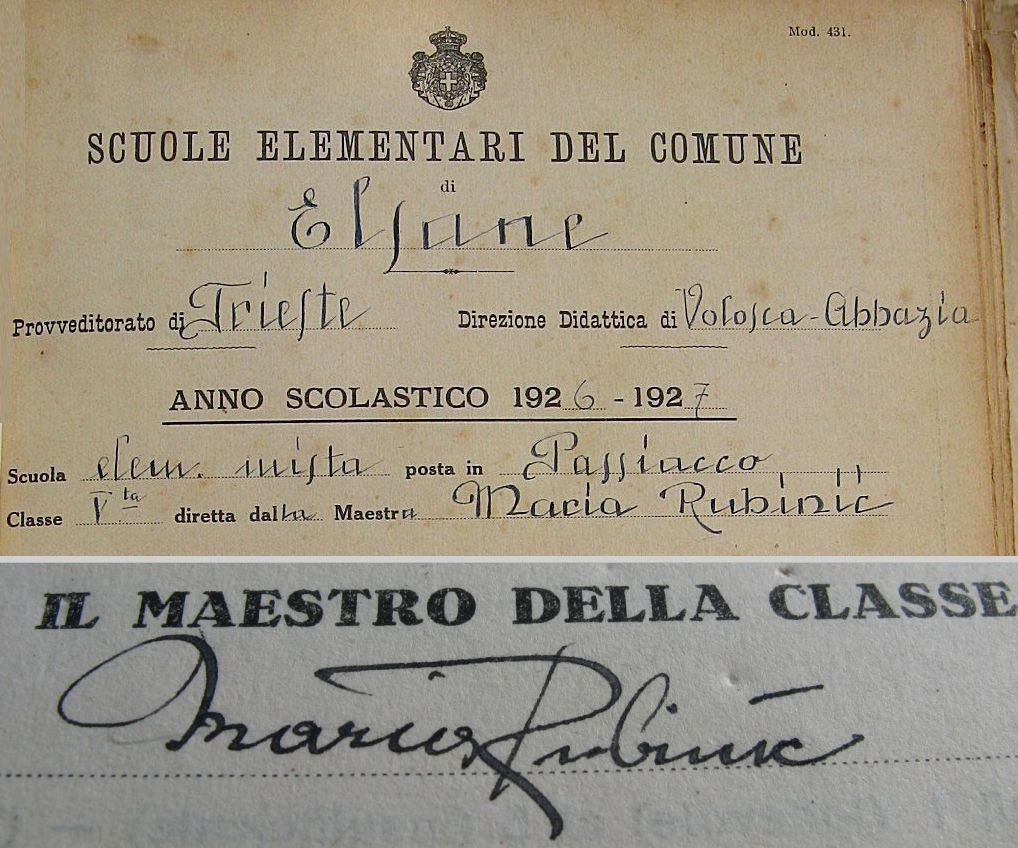 Mod. 431.
SCUOLE ELEMENTARI DEL COMUNE
di
Elsane
Provveditorato di Trieste Direzione Didattica di Volosca-Abbazia
ANNO SCOLASTICO 1926-1927
Scuola elem. mista posta in Passiacco
Classe Vta diretta dalla Maestra Maria Rubinić
IL MAESTRO DELLA CLASSE
Maria Rubinić